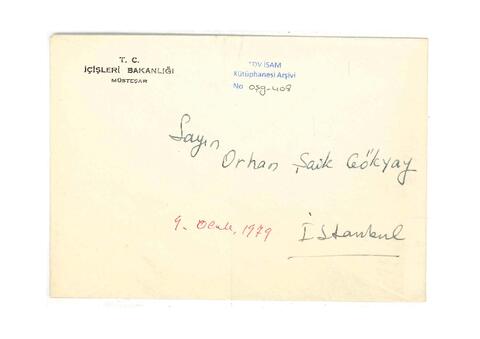 T. C.
İÇİŞLERİ BAKANLIĞI
MÜSTEŞAR
TDV İSAM
Kütüphanesi Arşivi
No OŞG-408
Sayın
Orhan Şaik Gökyay
9. Ocak. 1979
İstanbul